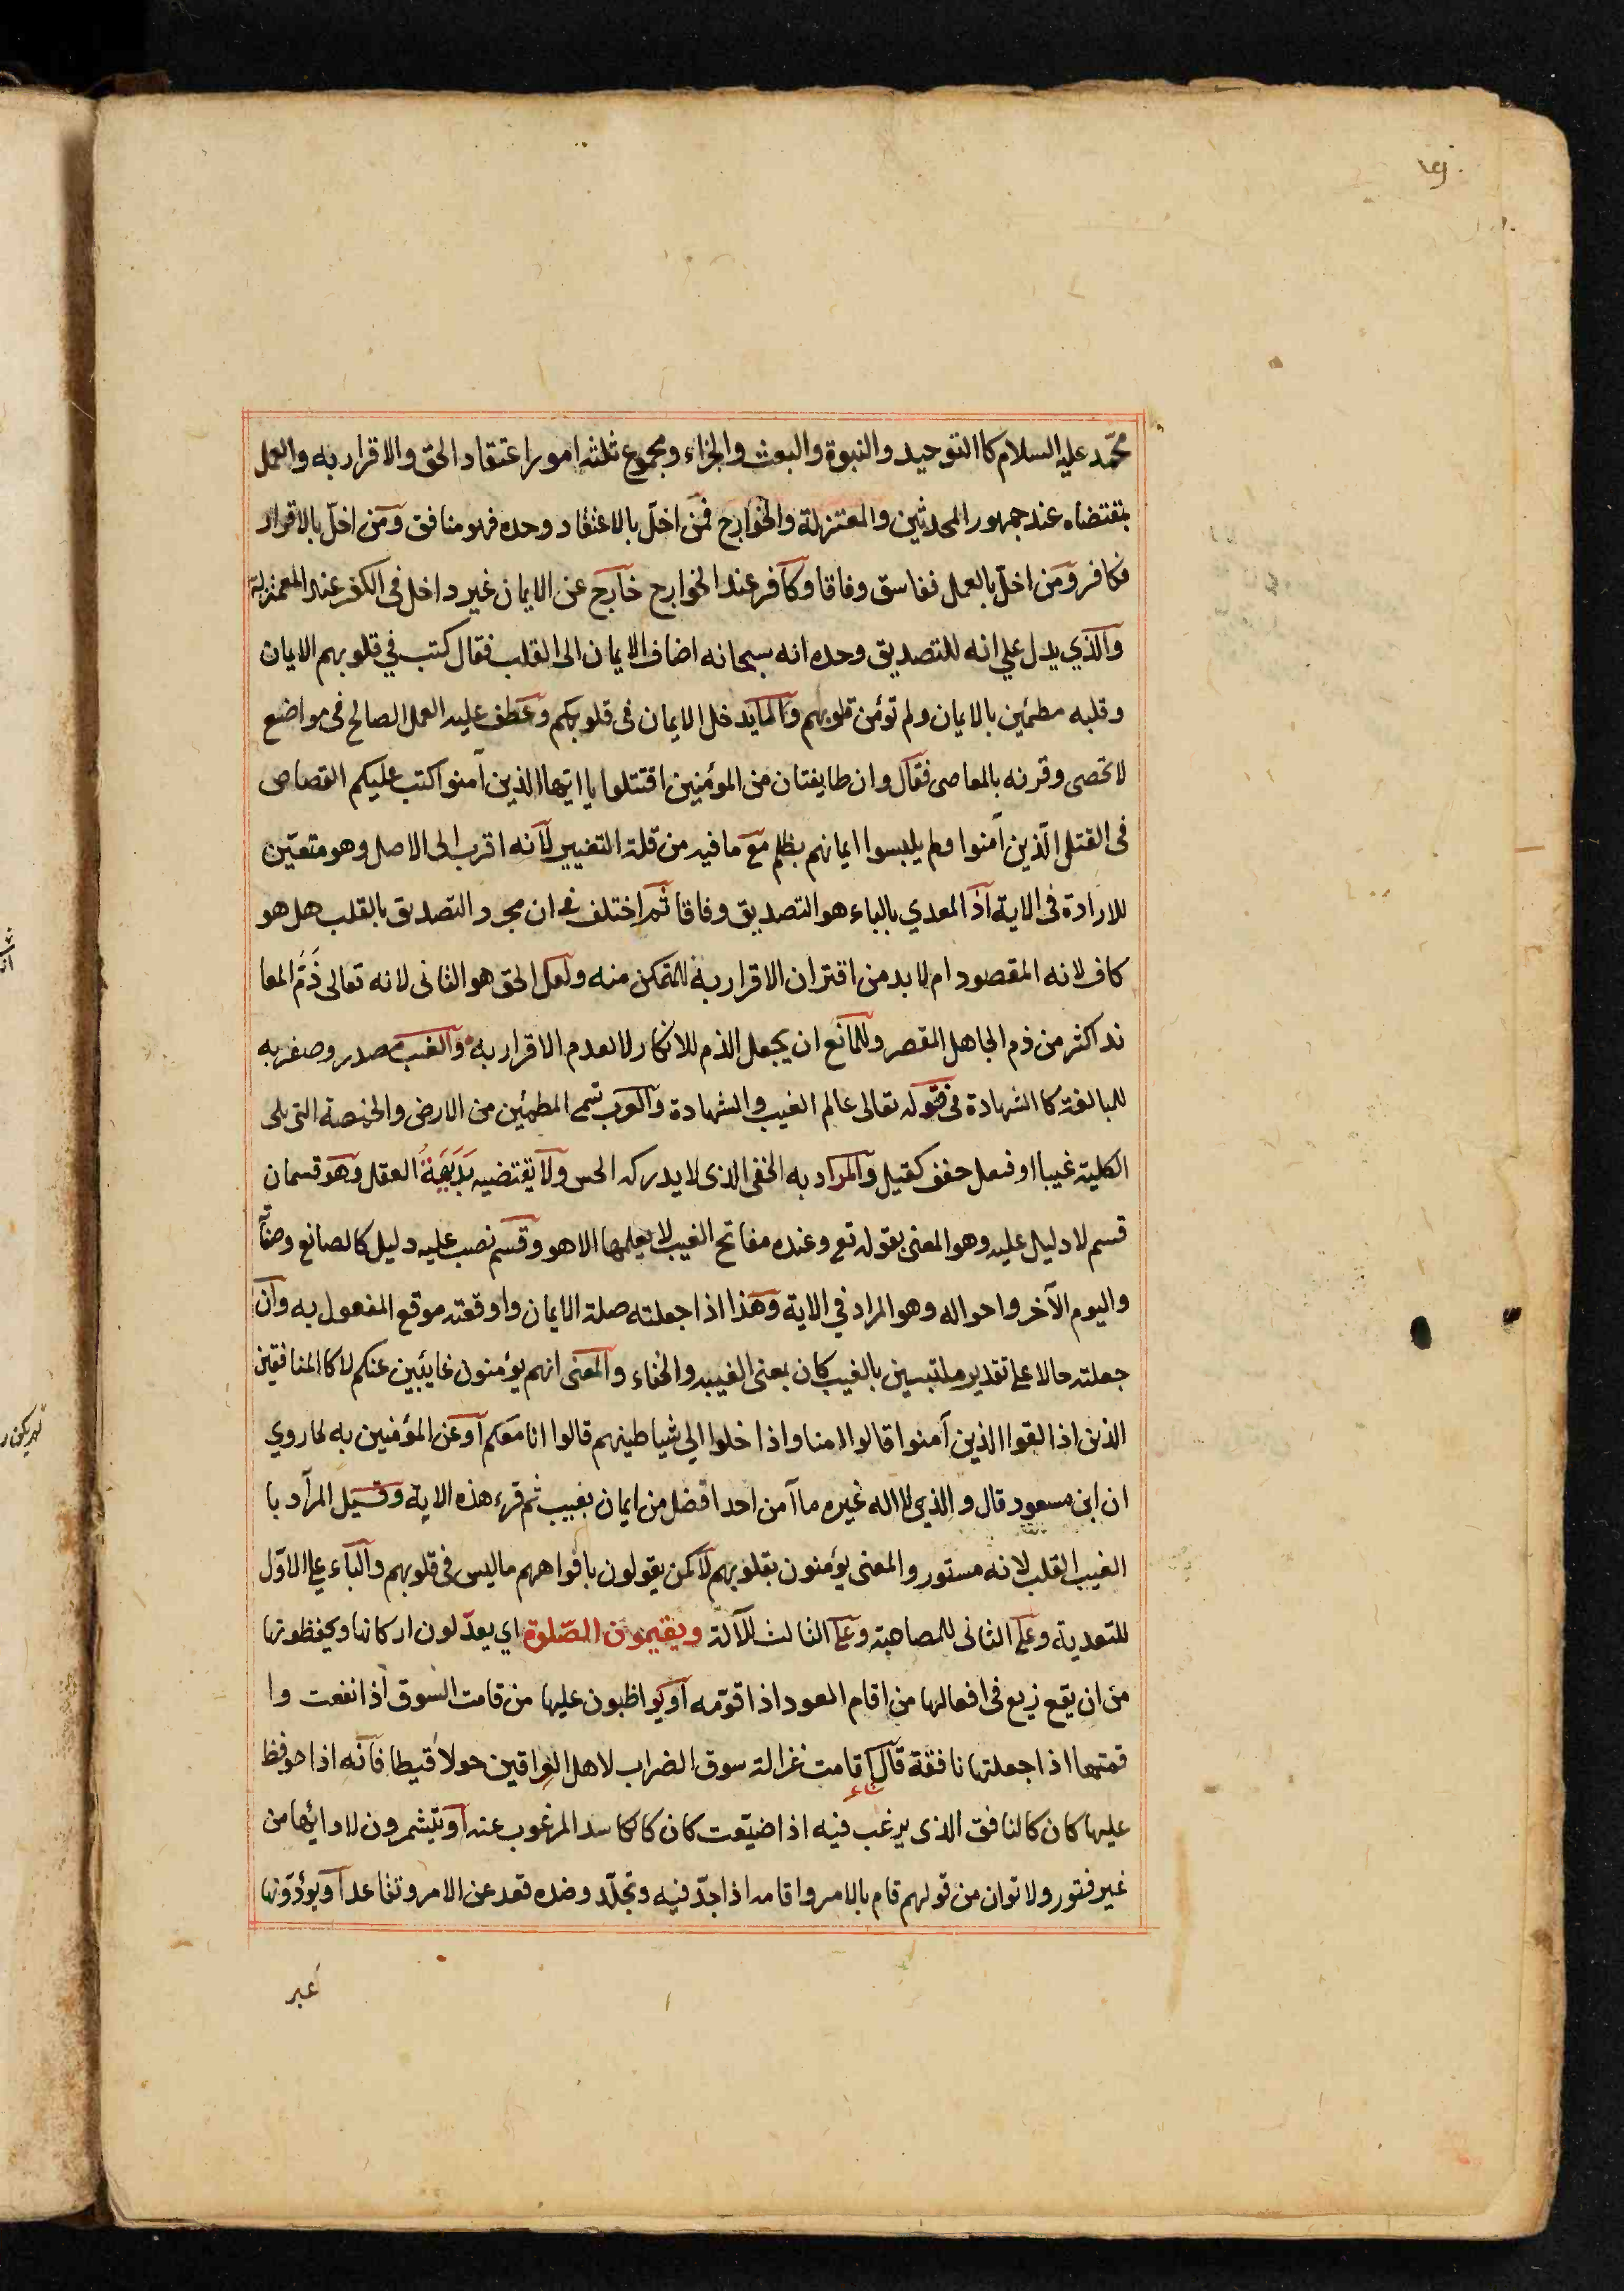 محمّد عليه السلام كاالتوحيد والنبوة والبعث والجزاء ومجموع ثلثة امور اعتقاد الحق والاقرار به والعمل
بمقتضاه عند جمهور المحدثين والمعتزلة والخوارج فمن اخلّ بالاعتقاد وحده فهو منافق ومن اخلّ بالاقرار
فكافر ومن اخلّ بالعمل ففاسق وفاقا وكافر عند الخوارج خارج عن الايمان غير داخل في الكفر عند المعتزلة
والذي يدل علي انه للتصديق وحده انه سبحانه اضاف الايمان الى القلب فقال كتب في قلوبهم الايمان
وقلبه مطمئين بالايمان ولم تؤمن قلوبهم ولما يدخل الايمان في قلوبكم وعطف عليه العمل الصالح في مواضع
لا تحصى وقرنه بالمعاصى فقال وان طايفتان من المؤمنين اقتتلوا يا ايّها الذين آمنوا كتب عليكم القصاص
فى القتلى الّذين آمنوا ولم يلبسوا ايمانهم بظلم مع ما فيه من قلة التغيير لانه اقرب الى الاصل وهو متعيّن
للارادة فى الاية اذ المعدي بالباء هو التصديق وفاقا ثم اختلف في ان مجرد التصديق بالقلب هل هو
كاف لانه المقصود ام لا بد من اقتران الاقرار به للمتمكن منه ولعل الحق هو الثانى لانه تعالى ذَمَّ المعا
ند اكثر من ذم الجاهل المقصر وللمانع ان يجعل الذم للانكار لا لعدم الاقرار به والغيب مصدر وصف به
للمبالغة كا الشهادة فى قوله تعالى عالم الغيب والشهادة والعرب تسمى المطمئين من الارض والخمصة التى يلى
الكلية غيبا او فيعل خفف كقيل والمراد به الخفى الذى لا يدركه الحس ولا يقتضيه بَدَيِهَةُ العقل وهو قسمان
قسم لا دليل عليه وهو المعنى بقوله تع وعنده مفاتح الغيب لا يعلمها الا هو وقسم نصب عليه دليل كالصانع وصفاته
واليوم الآخر واحواله وهو المراد في الاية وهذا اذا جعلته صلة الايمان واوقعته موقع المفعول به وان
جعلته حالا على تقدير ملتبسين بالغيب كان بمعنى الغيبه والخفاء والمعنى انهم يؤمنون غايئبين عنكم لا كا المنافقين
الذين اذا لقوا الذين آمنوا قالوا امنا واذا خلوا الي شياطينهم قالوا انا معكم او عن المؤمنين به لما روي
ان ابن مسعود قال والذي لا اله غيره ما آمن احد افضل من ايمان بغيب ثم قرء هذه الاية وقيل المراد با
الغيب القلب لانه مستور والمعنى يؤمنون بقلوبهم لا كمن يقولون بافواههم ما ليس فى قلوبهم والباء على الاوّل
للتعدية وعلى الثانى للمصاحبة وعلى الثالث للآلة ويقيمون الصّلوة اي يعدّلون اركانها ويحفظونها
من ان يقع زيع فى افعالها من اقام العود اذا قوّمه او يواظبون عليها من قامت السوق اذا نفعت وا
قمتها اذا جعلتها نافقة قال اقامت غزالة سوق الضراب لاهل العراقين حولا قيطا فانه اذا حوفظ
عليها كان كالنافق الذى يرغب فيه اذا ضيّعت كان كالكاسد المرغوب عنه او يتشمرون لادائها من
غير فتور ولا توان من قولهم قام بالامر واقامه اذا جدّ فيه وتجلّد وضده قعد عن الامر وتقاعد او يؤدّونها
عبر